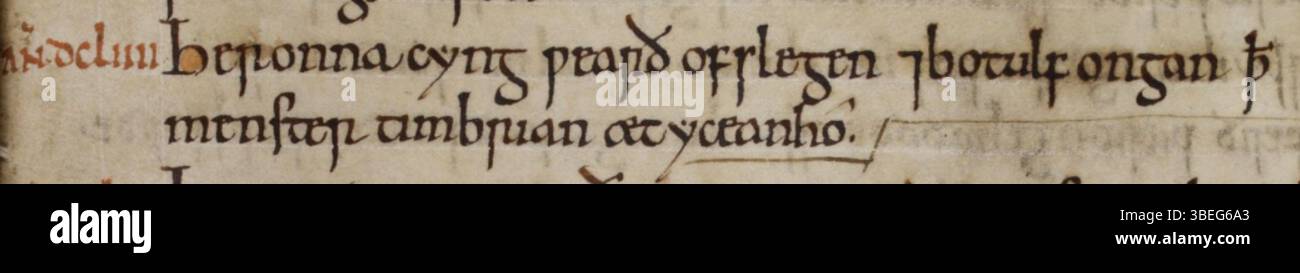 añ dcliiii Her onna cyng ƿearð ofslegen ⁊ botulf ongan ꝥ
menster timbrian æt ycean hō.
alamy
Image ID: 3BEG6A3
www.alamy.com